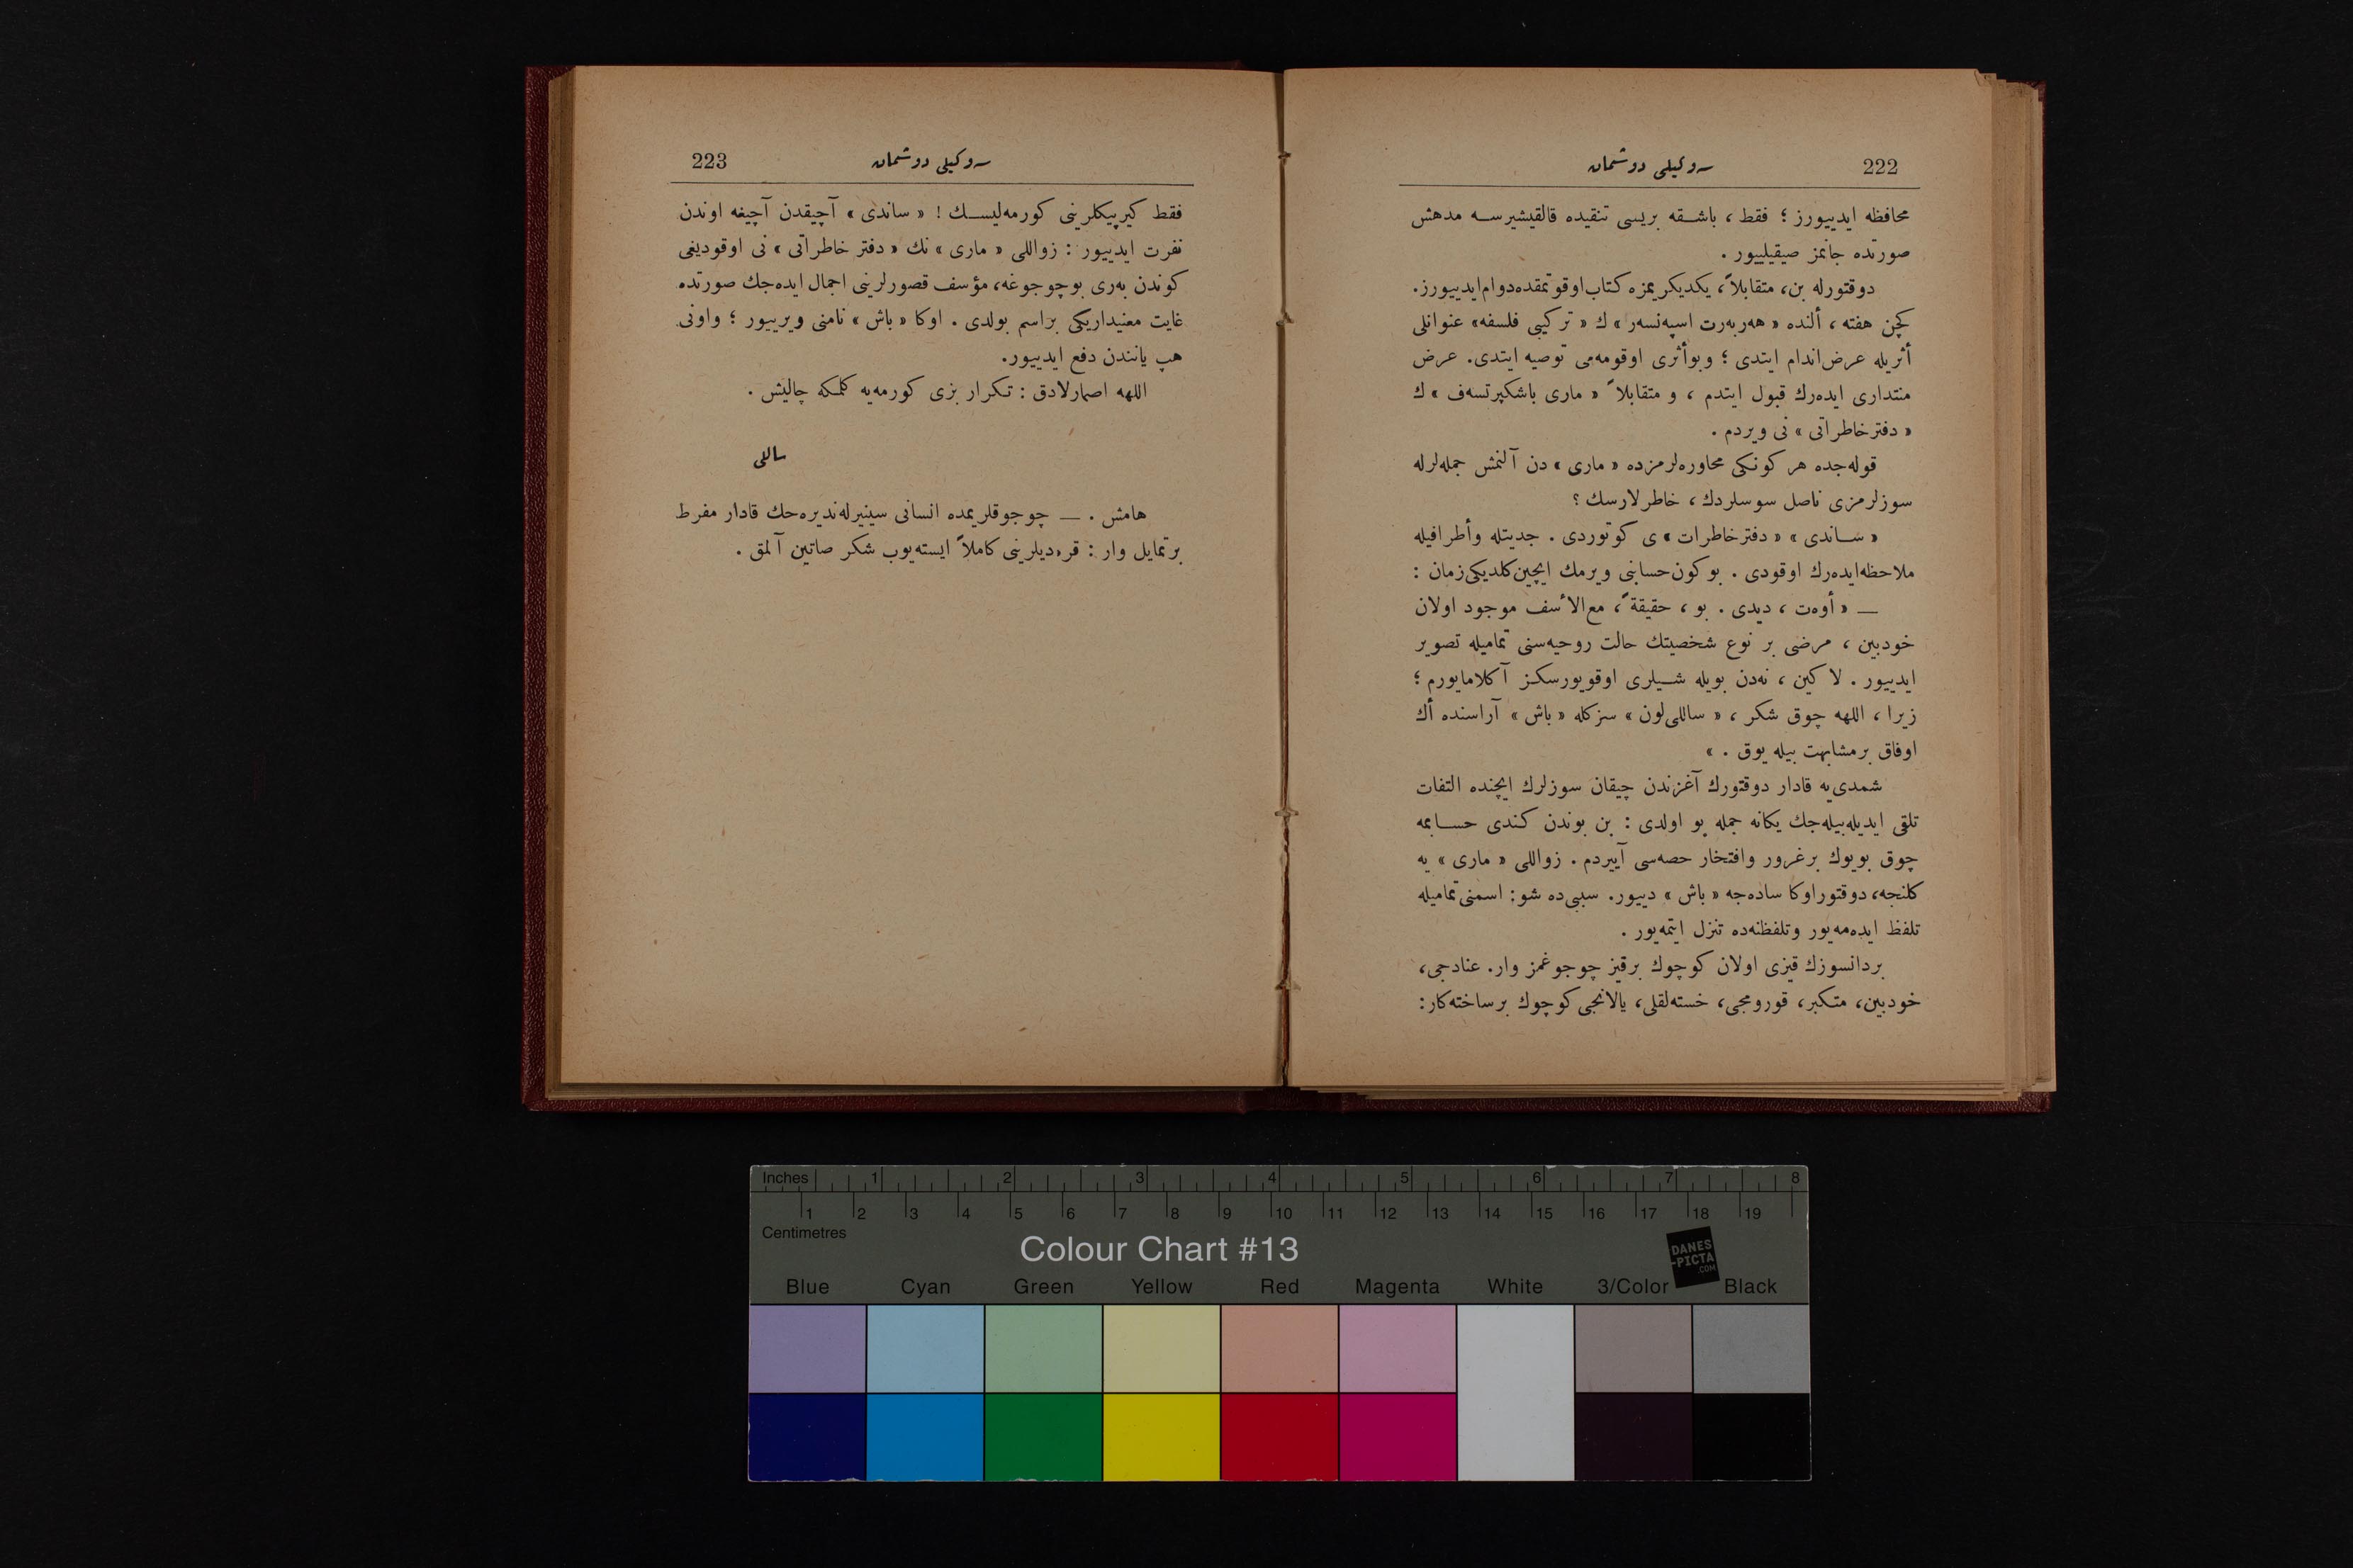 222
سه‌وكیلی دوشمان
محافظه ایدییورز ؛ فقط ، باشـقه بریسی تنقیده قالقیشیرسـه مدهش
صورتده جانمز صیقیلییور .
دوقتورله بن، متقابلاً، یكدیكریمزه كتاب اوقوتمقده دوام ایدییورز.
كچن هفته ، ألنده « هه‌ربه‌رت اسپه‌نسه‌ر » ك « تركیبی فلسفه» عنوانلی
أثریله عرض اندام ایتدی ؛ وبو أثری اوقومه‌می توصیه ایتدی. عرض
منتداری ایده‌رك قبول ایتدم ، و متقابلاً « ماری باشكیرتسه‌ف » ك
« دفتر خاطراتی » نی ویردم .
قوله‌جده هر كونكی محاوره‌لرمزده « ماری » دن آلنمش جمله‌لرله
سوزلرمزی ناصل سوسلردك ، خاطرلارسك ؟
« سـاندی » « دفتر خاطرات » ی كوتوردی . جدیتله وأطرافیله
ملاحظه ایده‌رك اوقودی . بو كون حسابنی ویرمك ایچین كلدیكی زمان :
— « أوه‌ت ، دیدی . بو ، حقیقةً ، مع‌الأسف موجود اولان
خودبین ، مرضی بر نوع شخصیتك حالت روحیه‌سنی تمامیله تصویر
ایدییور . لاكین ، نه‌دن بویله شـیلری اوقویورسكـز آكلامایورم ؛
زیرا ، اللهه چوق شكر ، « ساللی‌لون » سزكله « باش » آراسنده أك
اوفاق برمشابهت بیله یوق . »
شمدی‌یه قادار دوقتورك آغزندن چیقان سوزلرك ایچنده التفات
تلقی ایدیله‌بیله‌جك یكانه جمله بو اولدی : بن بوندن كندی حسـابمه
چوق بویوك برغرور وافتخار حصه‌سی آییردم . زواللی « ماری » یه
كلنجه، دوقتور اوكا ساده‌جه « باش » دییور. سببی ده شو: اسمنی تمامیله
تلفظ ایده‌مه‌یور وتلفظنه‌ده تنزل ایتمه‌یور .
بردانسوزك قیزی اولان كوچوك برقیز چوجوغمز وار. عنادجی،
خودبین، متكبر، قورومجی، خسته‌لقلی، یالانجی كوچوك برساخته‌كار:
223
سه‌وكیلی دوشمان
فقط كیرپیكلرینی كورمه‌لیسـك ! « ساندی » آچیقدن آچیغه اوندن
نفرت ایدییور : زواللی « ماری » نك « دفتر خاطراتی » نی اوقودیغی
كوندن به‌ری بوچوجوغه، مؤسف قصورلرینی اجمال ایده‌جك صورتده
غایت معنیداریكی براسم بولدی . اوكا « باش » نامنی ویرییور ؛ واونی
هپ یانندن دفع ایدییور.
اللهه اصمارلادق : تكرار بزی كورمه‌یه كلمكه چالیش .
ساللی
هامش . — چوجوقلریمده انسانی سینیرله‌ندیره‌جك قادار مفرط
برتمایل وار : قره‌دیلرینی كاملاً ایسته‌یوب شكر صاتین آلمق .
Inches 1 2 3 4 5 6 7 8
1 2 3 4 5 6 7 8 9 10 11 12 13 14 15 16 17 18 19
Centimetres
Colour Chart #13
DANES
-PICTA
.COM
Blue Cyan Green Yellow Red Magenta White 3/Color Black